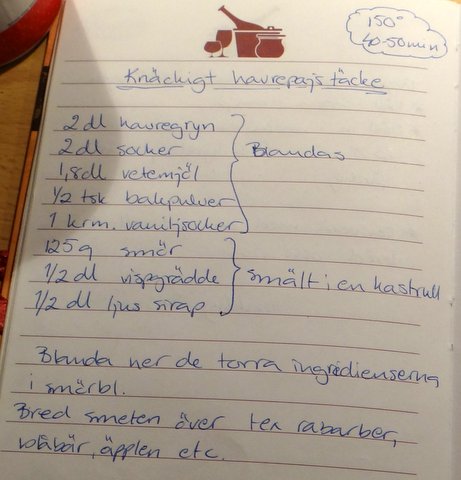 150°
40-50 min
Knäckigt havrepajstäcke
2 dl havregryn
2 dl socker
1,8 dl vetemjöl
1/2 tsk bakpulver
1 krm. vaniljsocker
Blandas
125 g smör
1/2 dl vispgrädde
1/2 dl ljus sirap
smält i en kastrull
Blanda ner de torra ingredienserna
i smörbl.
Bred smeten över tex rabarber,
blåbär, äpplen etc.